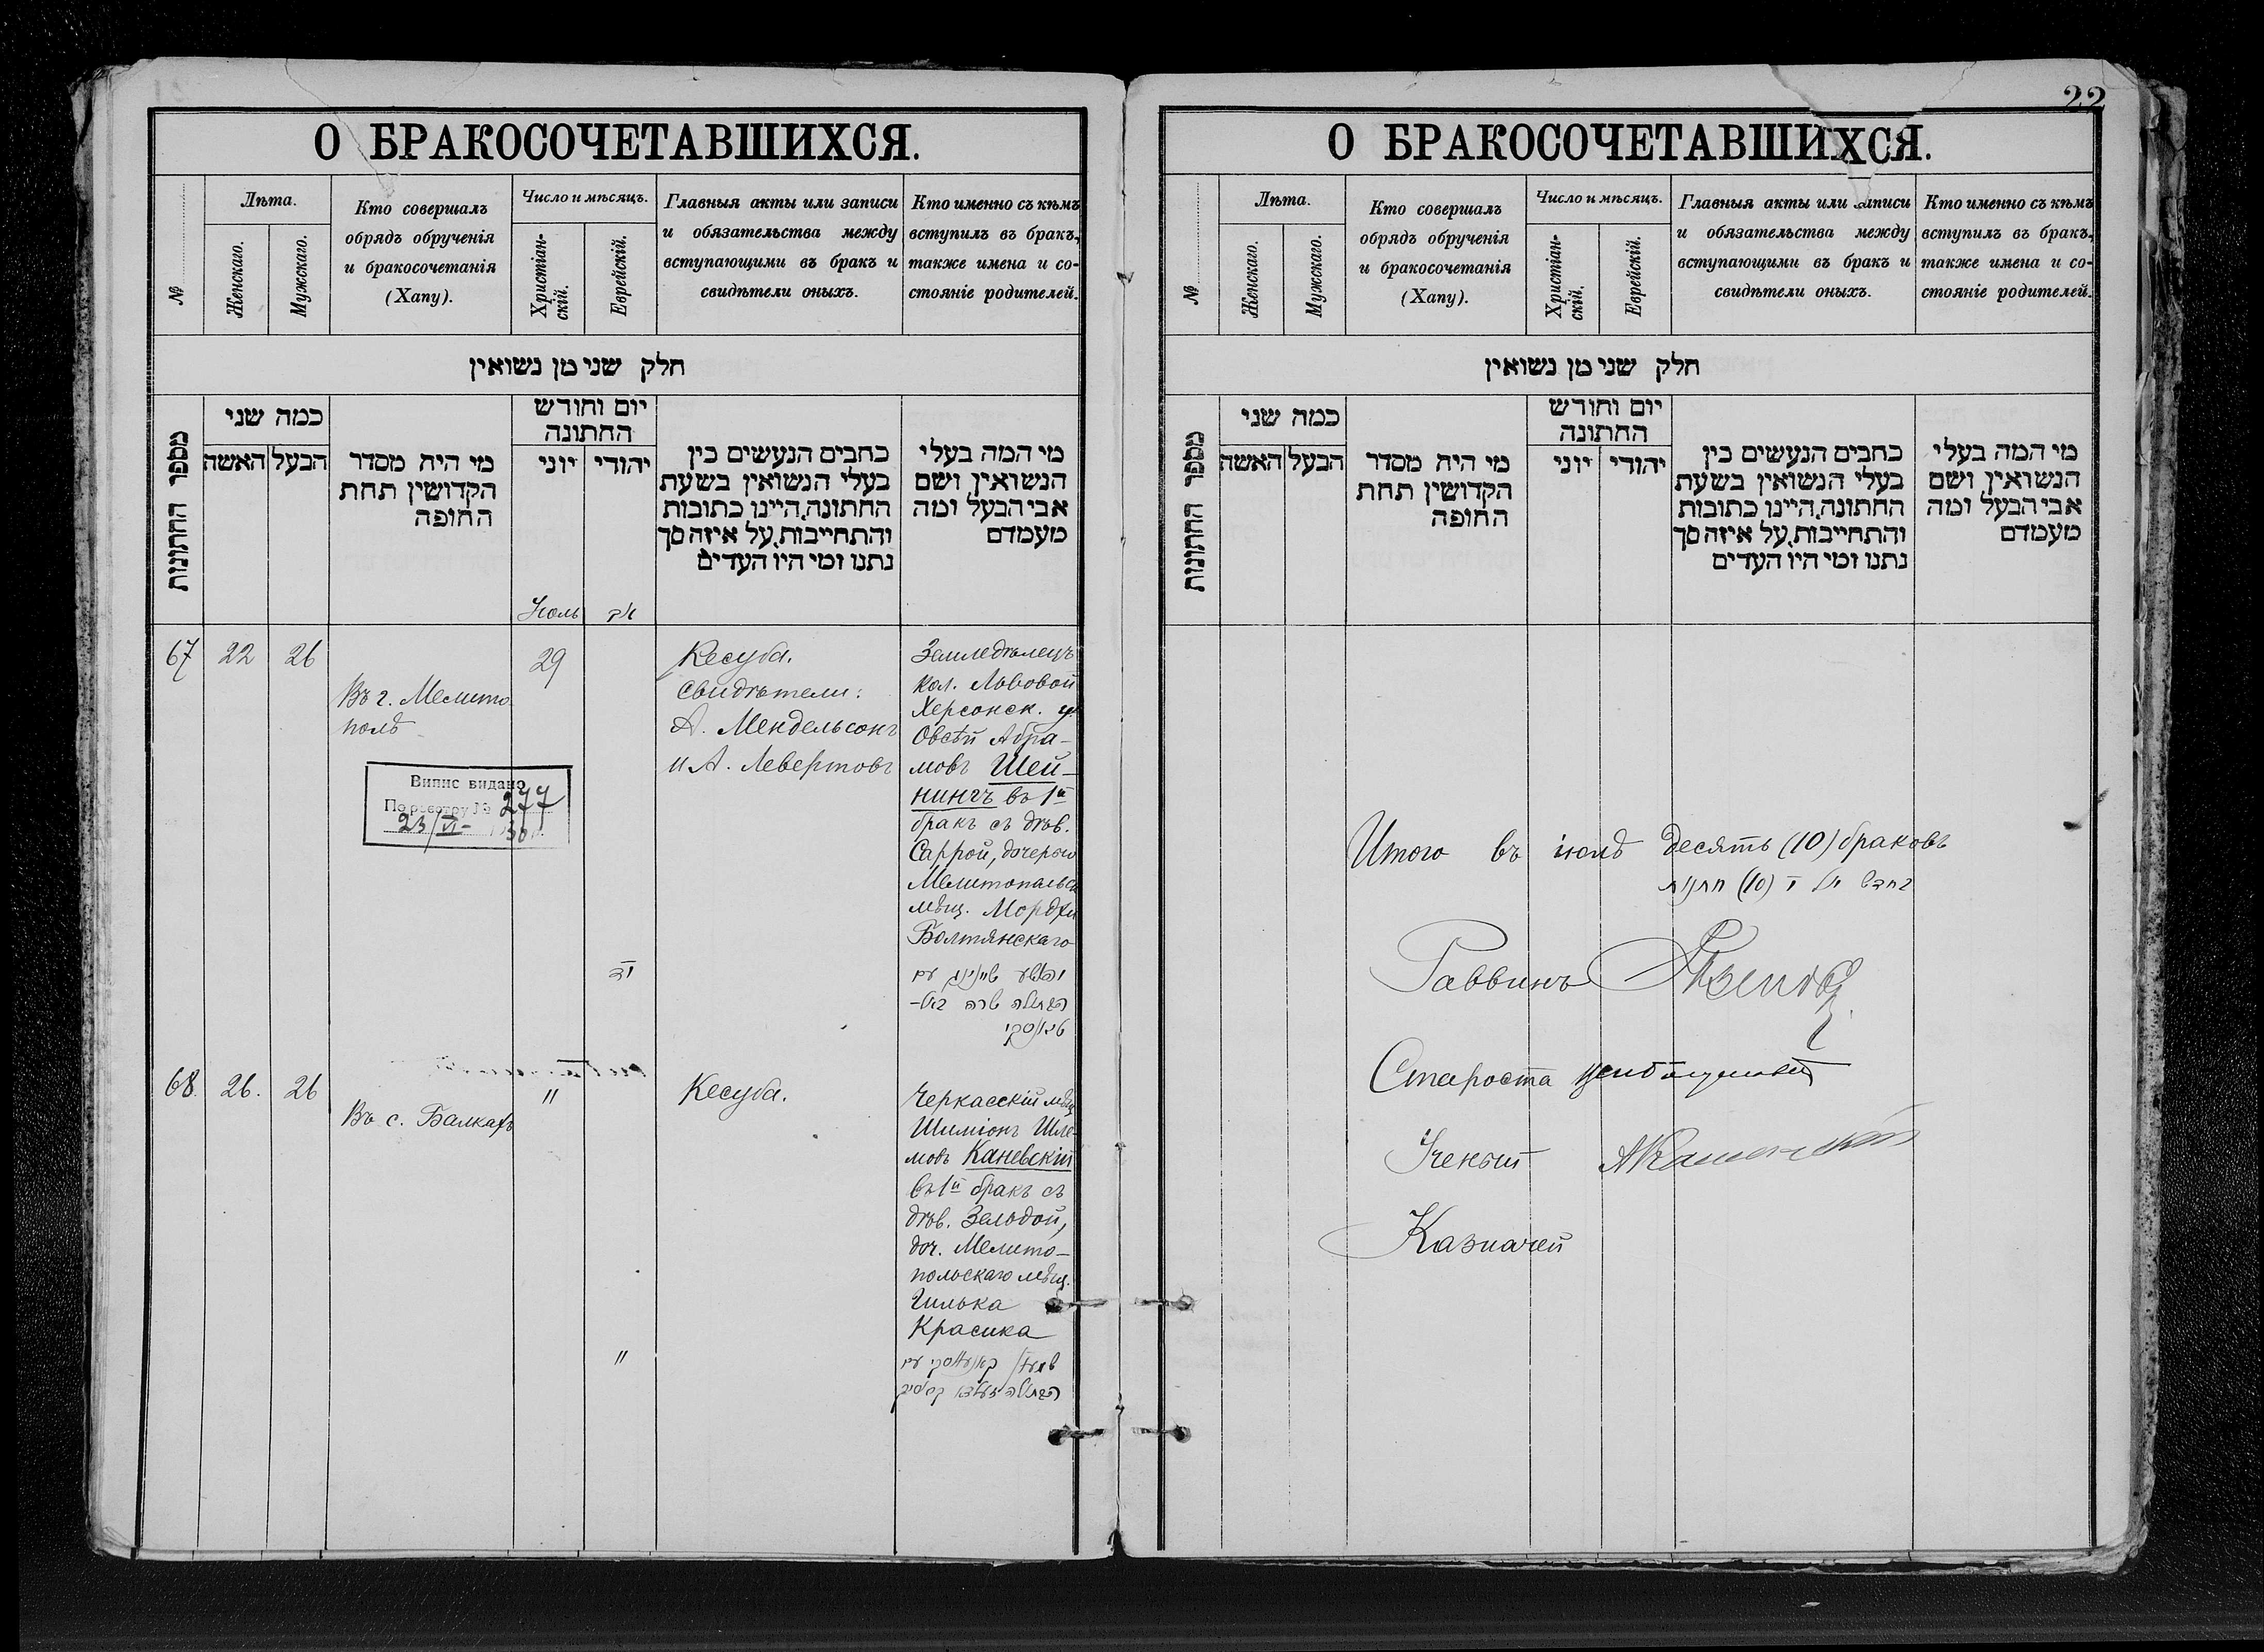 22
О БРАКОСОЧЕТАВШИХСЯ.
№
Лѣта.
Женскаго.
Мужскаго.
Кто совершалъ
обрядъ обрученія
и бракосочетанія
(Хапу).
Число и мѣсяцъ.
Христіан-
скій.
Еврейскій.
Главныя акты или записи
и обязательства между
вступающими въ бракъ и
свидѣтели оныхъ.
Кто именно съ кѣмъ
вступилъ въ бракъ,
также имена и со-
стояніе родителей.
חלק שני מן נשואין
מספר החתונות
כמה שני
הבעל
האשה
מי היה מסדר
הקדושין תחת
החופה
יום וחודש
החתונה
יהודי
יוני
כתבים הנעשים בין
בעלי הנשואין בשעת
החתונה, היינו כתובות
והתחייבות, על איזה סך
נתנו ומי היו העדים
מי המה בעלי
הנשואין ושם
אבי הבעל ומה
מעמדם
Іюль
67
22
26
Въ г. Мелито
полѣ
29
Кесуба.
Свидѣтели:
А. Мендельсонъ
и А. Левертовъ
Земледѣлецъ
кол. Львовой
Херсонск. у.
Овсѣй Абра-
мовъ Шей-
нингъ въ 1й
бракъ съ дѣв.
Саррой, дочерью
Мелитопольск
мѣщ. Мордхи
Болтянскаго
יהושע שיינינג עם
הבתולה שרה באל-
טיאנסקי
Випис видано
По реєстру № 277
23/VI- 30
68.
26.
26
Въ с. Балкахъ
"
"
Кесуба.
Черкасскій мѣщ
Шиміонъ Шле-
мовъ Каневскій
въ 1й бракъ съ
дѣв. Зельдой,
доч. Мелито-
польскаго мѣщ.
Гилька
Красика
שמעון קאנעווסקי עם
הבתולה זעלדא קראסיק
О БРАКОСОЧЕТАВШИХСЯ.
№
Лѣта.
Женскаго.
Мужскаго.
Кто совершалъ
обрядъ обрученія
и бракосочетанія
(Хапу).
Число и мѣсяцъ.
Христіан-
скій.
Еврейскій.
Главныя акты или записи
и обязательства между
вступающими въ бракъ и
свидѣтели оныхъ.
Кто именно съ кѣмъ
вступилъ въ бракъ,
также имена и со-
стояніе родителей.
חלק שני מן נשואין
מספר החתונות
כמה שני
הבעל
האשה
מי היה מסדר
הקדושין תחת
החופה
יום וחודש
החתונה
יהודי
יוני
כתבים הנעשים בין
בעלי הנשואין בשעת
החתונה, היינו כתובות
והתחייבות, על איזה סך
נתנו ומי היו העדים
מי המה בעלי
הנשואין ושם
אבי הבעל ומה
מעמדם
Итого въ іюлѣ десять (10) браковъ
בחדש יולי י (10) חתונות
Раввинъ
Староста
Ученый
Казначей